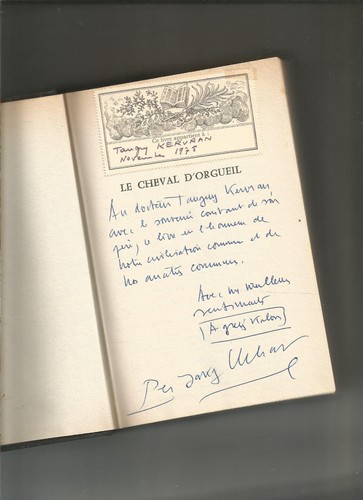 Ce livre appartient à :
Tanguy KERVRAN
Novembre 1975
LE CHEVAL D'ORGUEIL
Au docteur Tanguy Kervran
avec le souvenir constant de son
père, ce livre en l'honneur de
notre civilisation commune et de
nos amitiés communes.
Avec mes meilleurs
sentiments
Per Jakez Helias